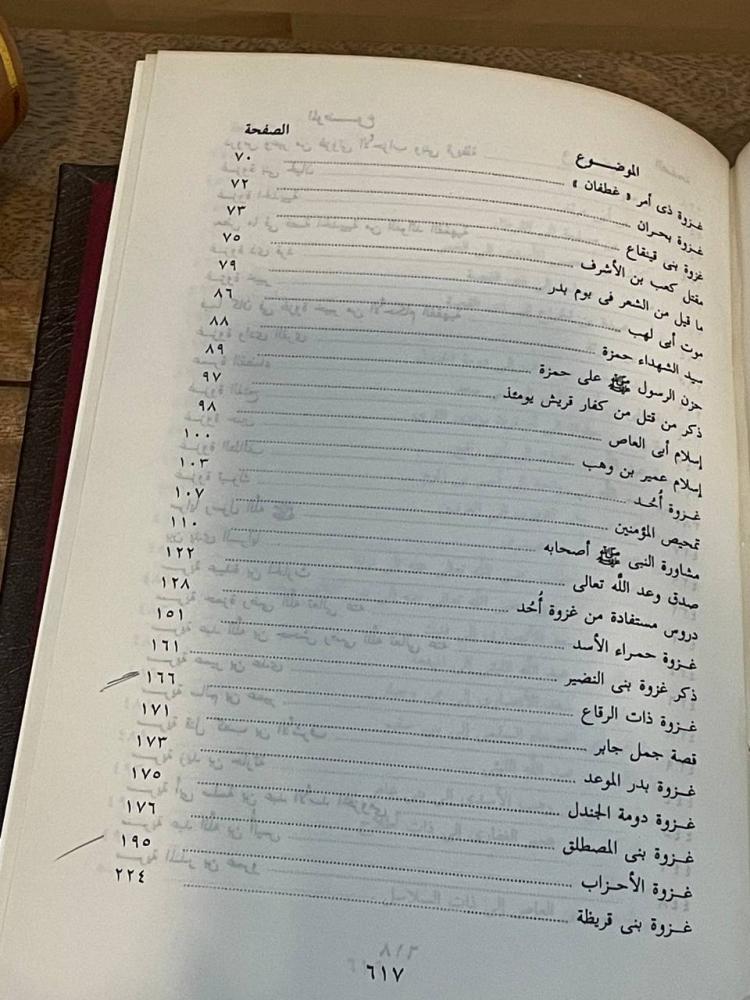 الموضـــوع الصفحة
غزوة ذى أمر « غطفان » ٧٠
غزوة بحران ٧٢
غزوة بنى قينقاع ٧٣
مقتل كعب بن الأشرف ٧٥
ما قيل من الشعر فى يوم بدر ٧٩
موت أبى لهب ٨٦
سيد الشهداء حمزة ٨٨
حزن الرسول ﷺ على حمزة ٨٩
ذكر من قتل من كفار قريش يومئذ ٩٧
إسلام أبى العاص ٩٨
إسلام عمير بن وهب ١٠٠
غـزوة أُحُـد ١٠٣
تمحيص المؤمنين ١٠٧
مشاورة النبى ﷺ أصحابه ١١٠
صدق وعد اللَّه تعالى ١٢٢
دروس مستفادة من غزوة أُحُد ١٢٨
غـزوة حمراء الأسد ١٥١
ذكر غزوة بنى النضير ١٦١
غـزوة ذات الرقاع ١٦٦
قصة جمل جابر ١٧١
غـزوة بدر الموعد ١٧٣
غـزوة دومة الجندل ١٧٥
غـزوة بنى المصطلق ١٧٦
غـزوة الأحـزاب ١٩٥
غـزوة بنى قريظة ٢٢٤
٦١٧